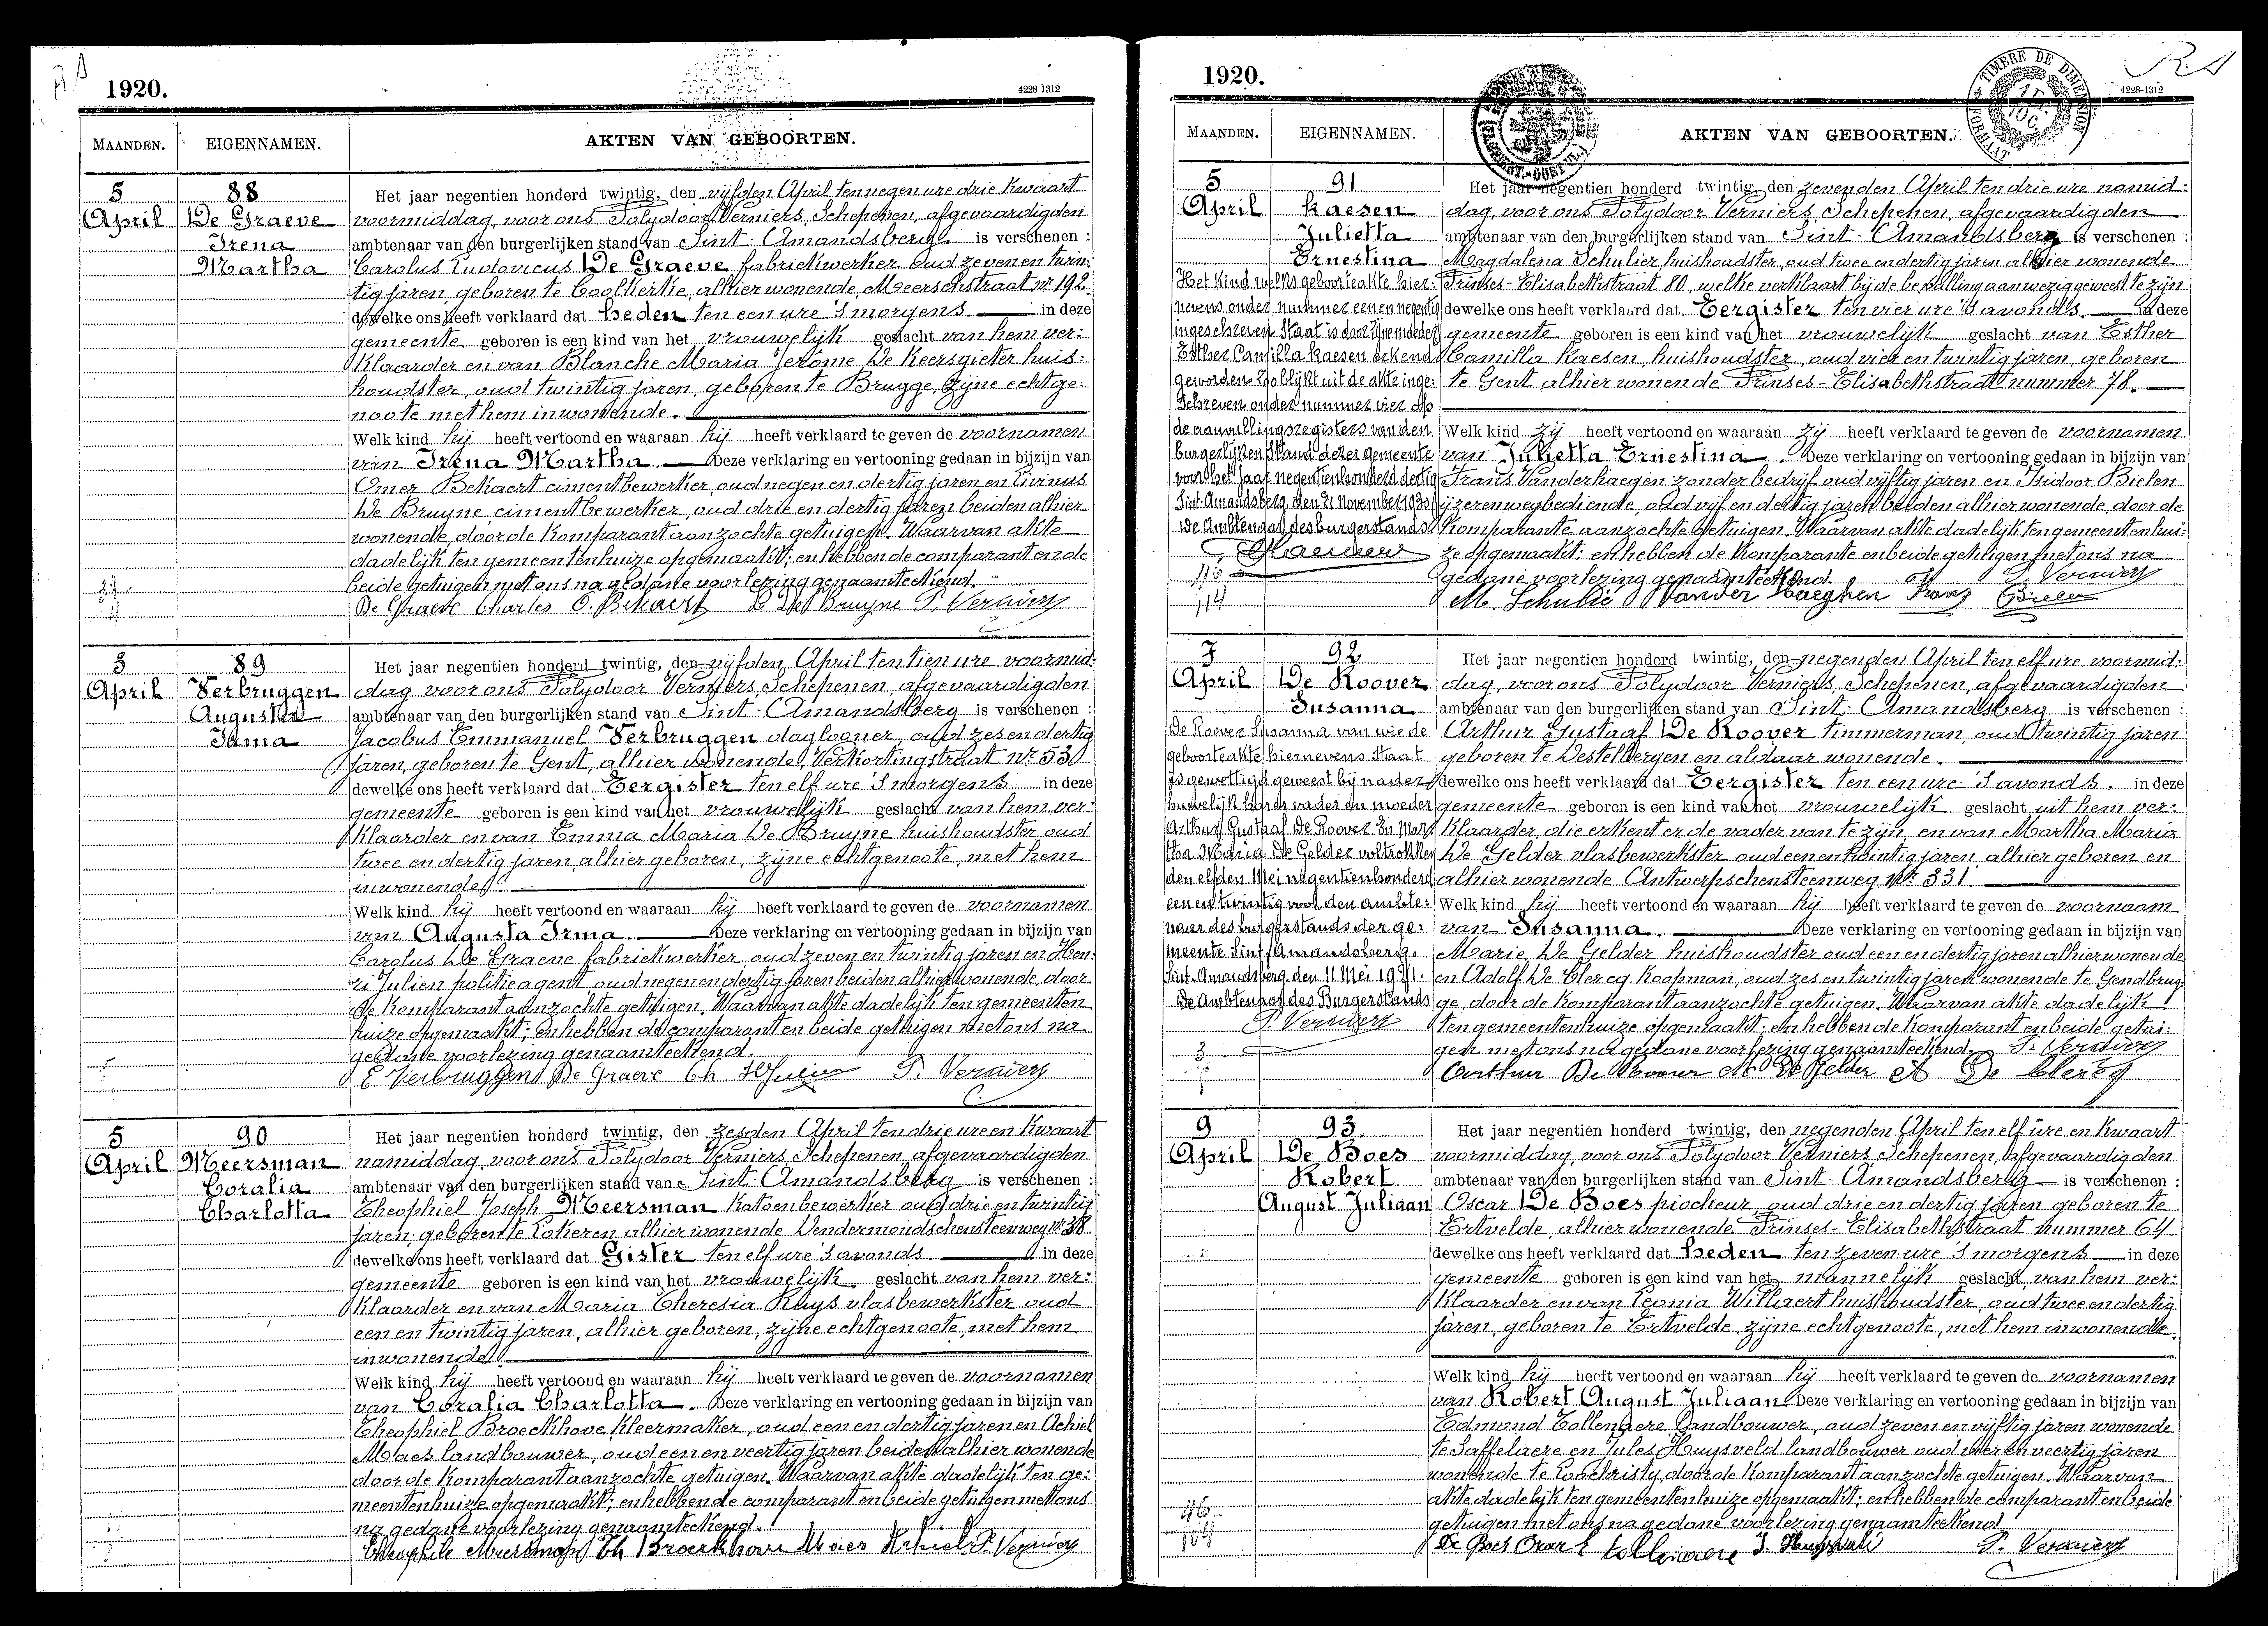 1920.
4228 1312
MAANDEN.
EIGENNAMEN.
AKTEN VAN GEBOORTEN.
5
April
88
De Graeve
Irena
Martha
Het jaar negentien honderd twintig, den vijfden April ten negen ure drie kwaart
voormiddag, voor ons Polydoor Verniers, Schepenen, afgevaardigden
ambtenaar van den burgerlijken stand van Sint-Amandsberg is verschenen :
Carolus Ludovicus De Graeve fabriekwerker oud zeven en twin-
tig jaren, geboren te Coolkerke, alhier wonende, Meerschstraat nr 192.
dewelke ons heeft verklaard dat heden ten een ure 's morgens in deze
gemeente geboren is een kind van het vrouwelijk geslacht van hem ver:
klaarder en van Blanche Maria Jerôme De Keersgieter huis:
houdster, oud twintig jaren, geboren te Brugge, zijne echtge:
noote met hem inwonende.
Welk kind hij heeft vertoond en waaraan hij heeft verklaard te geven de voornamen
van Irena Martha. Deze verklaring en vertooning gedaan in bijzijn van
Omer Bekaert cimentbewerker, oud negen en dertig jaren en Livinus
De Bruyne, cimentbewerker, oud drie en dertig jaren beiden alhier
wonende, door de komparant aanzochte getuigen. Waarvan akte
dadelijk ten gemeentenhuize opgemaakt; en hebben de comparant en de
beide getuigen met ons na gedane voorlezing genaamteekend.
De Graeve Charles O. Bekaert L De Bruyne P. Verniers
3
April
89
Verbruggen
Augusta
Irma
Het jaar negentien honderd twintig, den vijfden April ten tien ure voormid:
dag voor ons Polydoor Verniers, Schepenen, afgevaardigden
ambtenaar van den burgerlijken stand van Sint-Amandsberg is verschenen :
Jacobus Emmanuel Verbruggen daglooner, oud zes en dertig
jaren, geboren te Gent, alhier wonende, Verkortingstraat Nr 530
dewelke ons heeft verklaard dat Eergister ten elf ure 's morgens in deze
gemeente geboren is een kind van het vrouwelijk geslacht van hem ver:
klaarder en van Emma Maria De Bruyne huishoudster oud
twee en dertig jaren, alhier geboren, zijne echtgenoote, met hem
inwonende.
Welk kind hij heeft vertoond en waaraan hij heeft verklaard te geven de voornamen
van Augusta Irma. Deze verklaring en vertooning gedaan in bijzijn van
Carolus De Graeve fabriekwerker, oud zeven en twintig jaren en Hen:
ri Julien politieagent, oud negen en dertig jaren beiden alhier wonende, door
de komparant aanzochte getuigen. Waarvan akte dadelijk ten gemeenten
huize opgemaakt; en hebben de comparant en beide getuigen met ons na
gedane voorlezing genaamteekend.
E Verbruggen De Graeve Ch H Julien P. Verniers
5
April
90
Meersman
Coralia
Charlotta
Het jaar negentien honderd twintig, den zesden April ten drie ure en kwaart
namiddag, voor ons Polydoor Verniers, Schepenen, afgevaardigden
ambtenaar van den burgerlijken stand van Sint-Amandsberg is verschenen :
Theophiel Joseph Meersman katoenbewerker oud drie en twintig
jaren geboren te Lokeren, alhier wonende Dendermondschensteenweg Nr 38
dewelke ons heeft verklaard dat Gister ten elf ure 's avonds. in deze
gemeente geboren is een kind van het vrouwelijk geslacht van hem ver:
klaarder en van Maria Theresia Ruys vlasbewerkster oud
een en twintig jaren, alhier geboren, zijne echtgenoote, met hem
inwonende.
Welk kind hij heeft vertoond en waaraan hij heeft verklaard te geven de voornamen
van Coralia Charlotta. Deze verklaring en vertooning gedaan in bijzijn van
Theophiel Broeckhove kleermaker, oud een en dertig jaren en Achiel
Maes landbouwer, oud een en veertig jaren beiden alhier wonende
door de komparant aanzochte getuigen. Waarvan akte dadelijk ten ge:
meentenhuize opgemaakt; en hebben de comparant en beide getuigen met ons
na gedane voorlezing genaamteekend.
Theophile Meersman Th Broeckhove Maes Achiel P. Verniers
1920.
TIMBRE DE DIMENSION
FORMAAT
4228-1312
MAANDEN.
EIGENNAMEN.
AKTEN VAN GEBOORTEN.
5
April
91
Kaesen
Julietta
Ernestina
Het kind welks geboorteakte hier:
nevens onder nummer een en negentig
ingeschreven staat is door zijne moeder
Esther Camilla Kaesen erkend
geworden zoo blijkt uit de akte inge:
schreven onder nummer vier op
de aanvullingsregisters van den
burgerlijken stand dezer gemeente
voor het jaar negentienhonderd dertig
Sint-Amandsberg, den 21 November 1930
De Ambtenaar des burgerstands
Het jaar negentien honderd twintig, den zevenden April ten drie ure namid:
dag, voor ons Polydoor Verniers, Schepenen, afgevaardigden
ambtenaar van den burgerlijken stand van Sint-Amandsberg is verschenen :
Magdalena Schulier huishoudster, oud twee en dertig jaren alhier wonende
Prinses-Elisabethstraat 80, welke verklaart bij de bevalling aanwezig geweest te zijn
dewelke ons heeft verklaard dat Eergister ten vier ure 's avonds. in deze
gemeente geboren is een kind van het vrouwelijk geslacht van Esther
Camilla Kaesen, huishoudster, oud vier en twintig jaren, geboren
te Gent alhier wonende Prinses-Elisabethstraat nummer 78.
Welk kind zij heeft vertoond en waaraan zij heeft verklaard te geven de voornamen
van Julietta Ernestina. Deze verklaring en vertooning gedaan in bijzijn van
Frans Vanderhaegen zonder bedrijf oud vijftig jaren en Isidoor Bielen
ijzerenwegbediende, oud vijf en dertig jaren beiden alhier wonende, door de
komparante aanzochte getuigen. Waarvan akte dadelijk ten gemeentenhui:
ze opgemaakt; en hebben de komparante en beide getuigen met ons na
gedane voorlezing genaamteekend. P. Verniers
M. Schulié Vander Haeghen Franz Bielen
7
April
92
De Roover
Susanna
De Roover Susanna van wie de
geboorteakte hiernevens staat
is gewettigd geweest bij nader
huwelijk harer vader en moeder
Arthur Gustaaf De Roover en Mar:
tha Maria De Gelder voltrokken
den elfden Mei negentienhonderd
een en twintig voor den ambte:
naar des burgerstands der ge:
meente Sint-Amandsberg.
Sint-Amandsberg, den 11 Mei 1921.
De Ambtenaar des Burgerstands
P. Verniers
Het jaar negentien honderd twintig, den negenden April ten elf ure voormid:
dag, voor ons Polydoor Verniers, Schepenen, afgevaardigden
ambtenaar van den burgerlijken stand van Sint-Amandsberg is verschenen :
Arthur Gustaaf De Roover timmerman, oud twintig jaren
geboren te Destelbergen en aldaar wonende.
dewelke ons heeft verklaard dat Eergister ten een ure 's avonds. in deze
gemeente geboren is een kind van het vrouwelijk geslacht uit hem ver:
klaarder, die erkent er de vader van te zijn, en van Martha Maria
De Gelder vlasbewerkster oud een en twintig jaren alhier geboren en
alhier wonende Antwerpschensteenweg Nr 331.
Welk kind hij heeft vertoond en waaraan hij heeft verklaard te geven de voornaam
van Susanna. Deze verklaring en vertooning gedaan in bijzijn van
Marie De Gelder huishoudster oud een en dertig jaren alhier wonende
en Adolf De Clercq koopman, oud zes en twintig jaren wonende te Gendbrug:
ge, door de komparant aanzochte getuigen. Waarvan akte dadelijk
ten gemeentenhuize opgemaakt; en hebben de komparant en beide getui:
gen met ons na gedane voorlezing genaamteekend. P. Verniers
Arthur De Roover M De Gelder A De Clercq
9
April
93
De Boes
Robert
August Juliaan
Het jaar negentien honderd twintig, den negenden April ten elf ure en kwaart
voormiddag, voor ons Polydoor Verniers Schepenen, afgevaardigden
ambtenaar van den burgerlijken stand van Sint-Amandsberg is verschenen :
Oscar De Boes piocheur, oud drie en dertig jaren geboren te
Ertvelde, alhier wonende Prinses-Elisabethstraat nummer 64
dewelke ons heeft verklaard dat heden ten zeven ure 's morgens in deze
gemeente geboren is een kind van het mannelijk geslacht van hem ver:
klaarder en van Leonia Willaert huishoudster, oud twee en dertig
jaren, geboren te Ertvelde, zijne echtgenoote, met hem inwonende.
Welk kind hij heeft vertoond en waaraan hij heeft verklaard te geven de voornamen
van Robert August Juliaan Deze verklaring en vertooning gedaan in bijzijn van
Edmond Tollenaere landbouwer, oud zeven en vijftig jaren wonende
te Saffelaere en Jules Huysveld landbouwer oud vier en veertig jaren
wonende te Loochristy, door de komparant aanzochte getuigen. Waarvan
akte dadelijk ten gemeentenhuize opgemaakt; en hebben de comparant en beide
getuigen met ons na gedane voorlezing genaamteekend.
De Boes Oscar E Tollenaere J. Huysveld P. Verniers